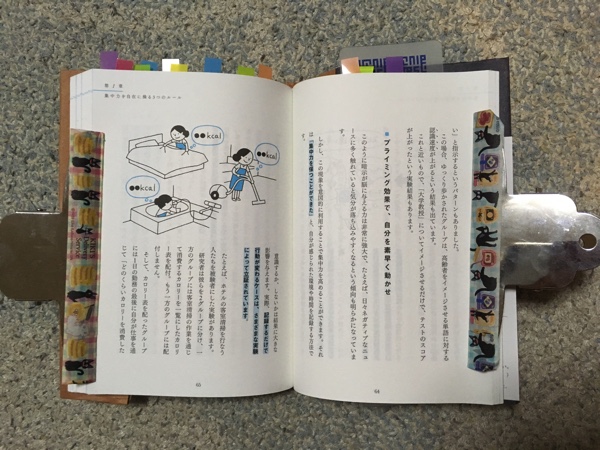 い」と指示するというパターンもありました。
この場合、ゆっくり歩かされたグループは、高齢者をイメージさせる単語に対する
認識速度が上がるという結果も出ています。
これと近いもので、「大学教授」についてイメージさせるだけで、テストのスコア
が上がったという実験結果もあります。
■ プライミング効果で、自分を素早く動かせ
このように暗示が脳に与える力は非常に強大で、たとえば、日々ネガティブなニュ
ースに多く触れていると気分が落ち込みやすくなるという傾向も明らかになっていま
す。
しかし、この現象を意図的に利用することで集中力を高めることができます。それ
は「集中力を保つことができた」と、自分が感じられた環境や時間を記録する方法で
す。
64
第2章
集中力を自在に操る3つのルール
●●kcal
●●kcal
●●kcal
意識するか、しないかは結果に大きな
影響を与えます。実際、記録するだけで
行動が変わるケースは、さまざまな実験
によって立証されています。
たとえば、ホテルの客室清掃を行なう
人たちを被験者にした実験があります。
研究者は彼らを2グループに分け、一
方のグループには客室清掃の作業を通じ
て消費するカロリーを一覧にしたカロリ
ー表を配り、もう一方のグループには配
付しません。
そして、カロリー表を配ったグループ
には1日の勤務の最後に自分が仕事を通
じて「どのくらいカロリーを消費した
65